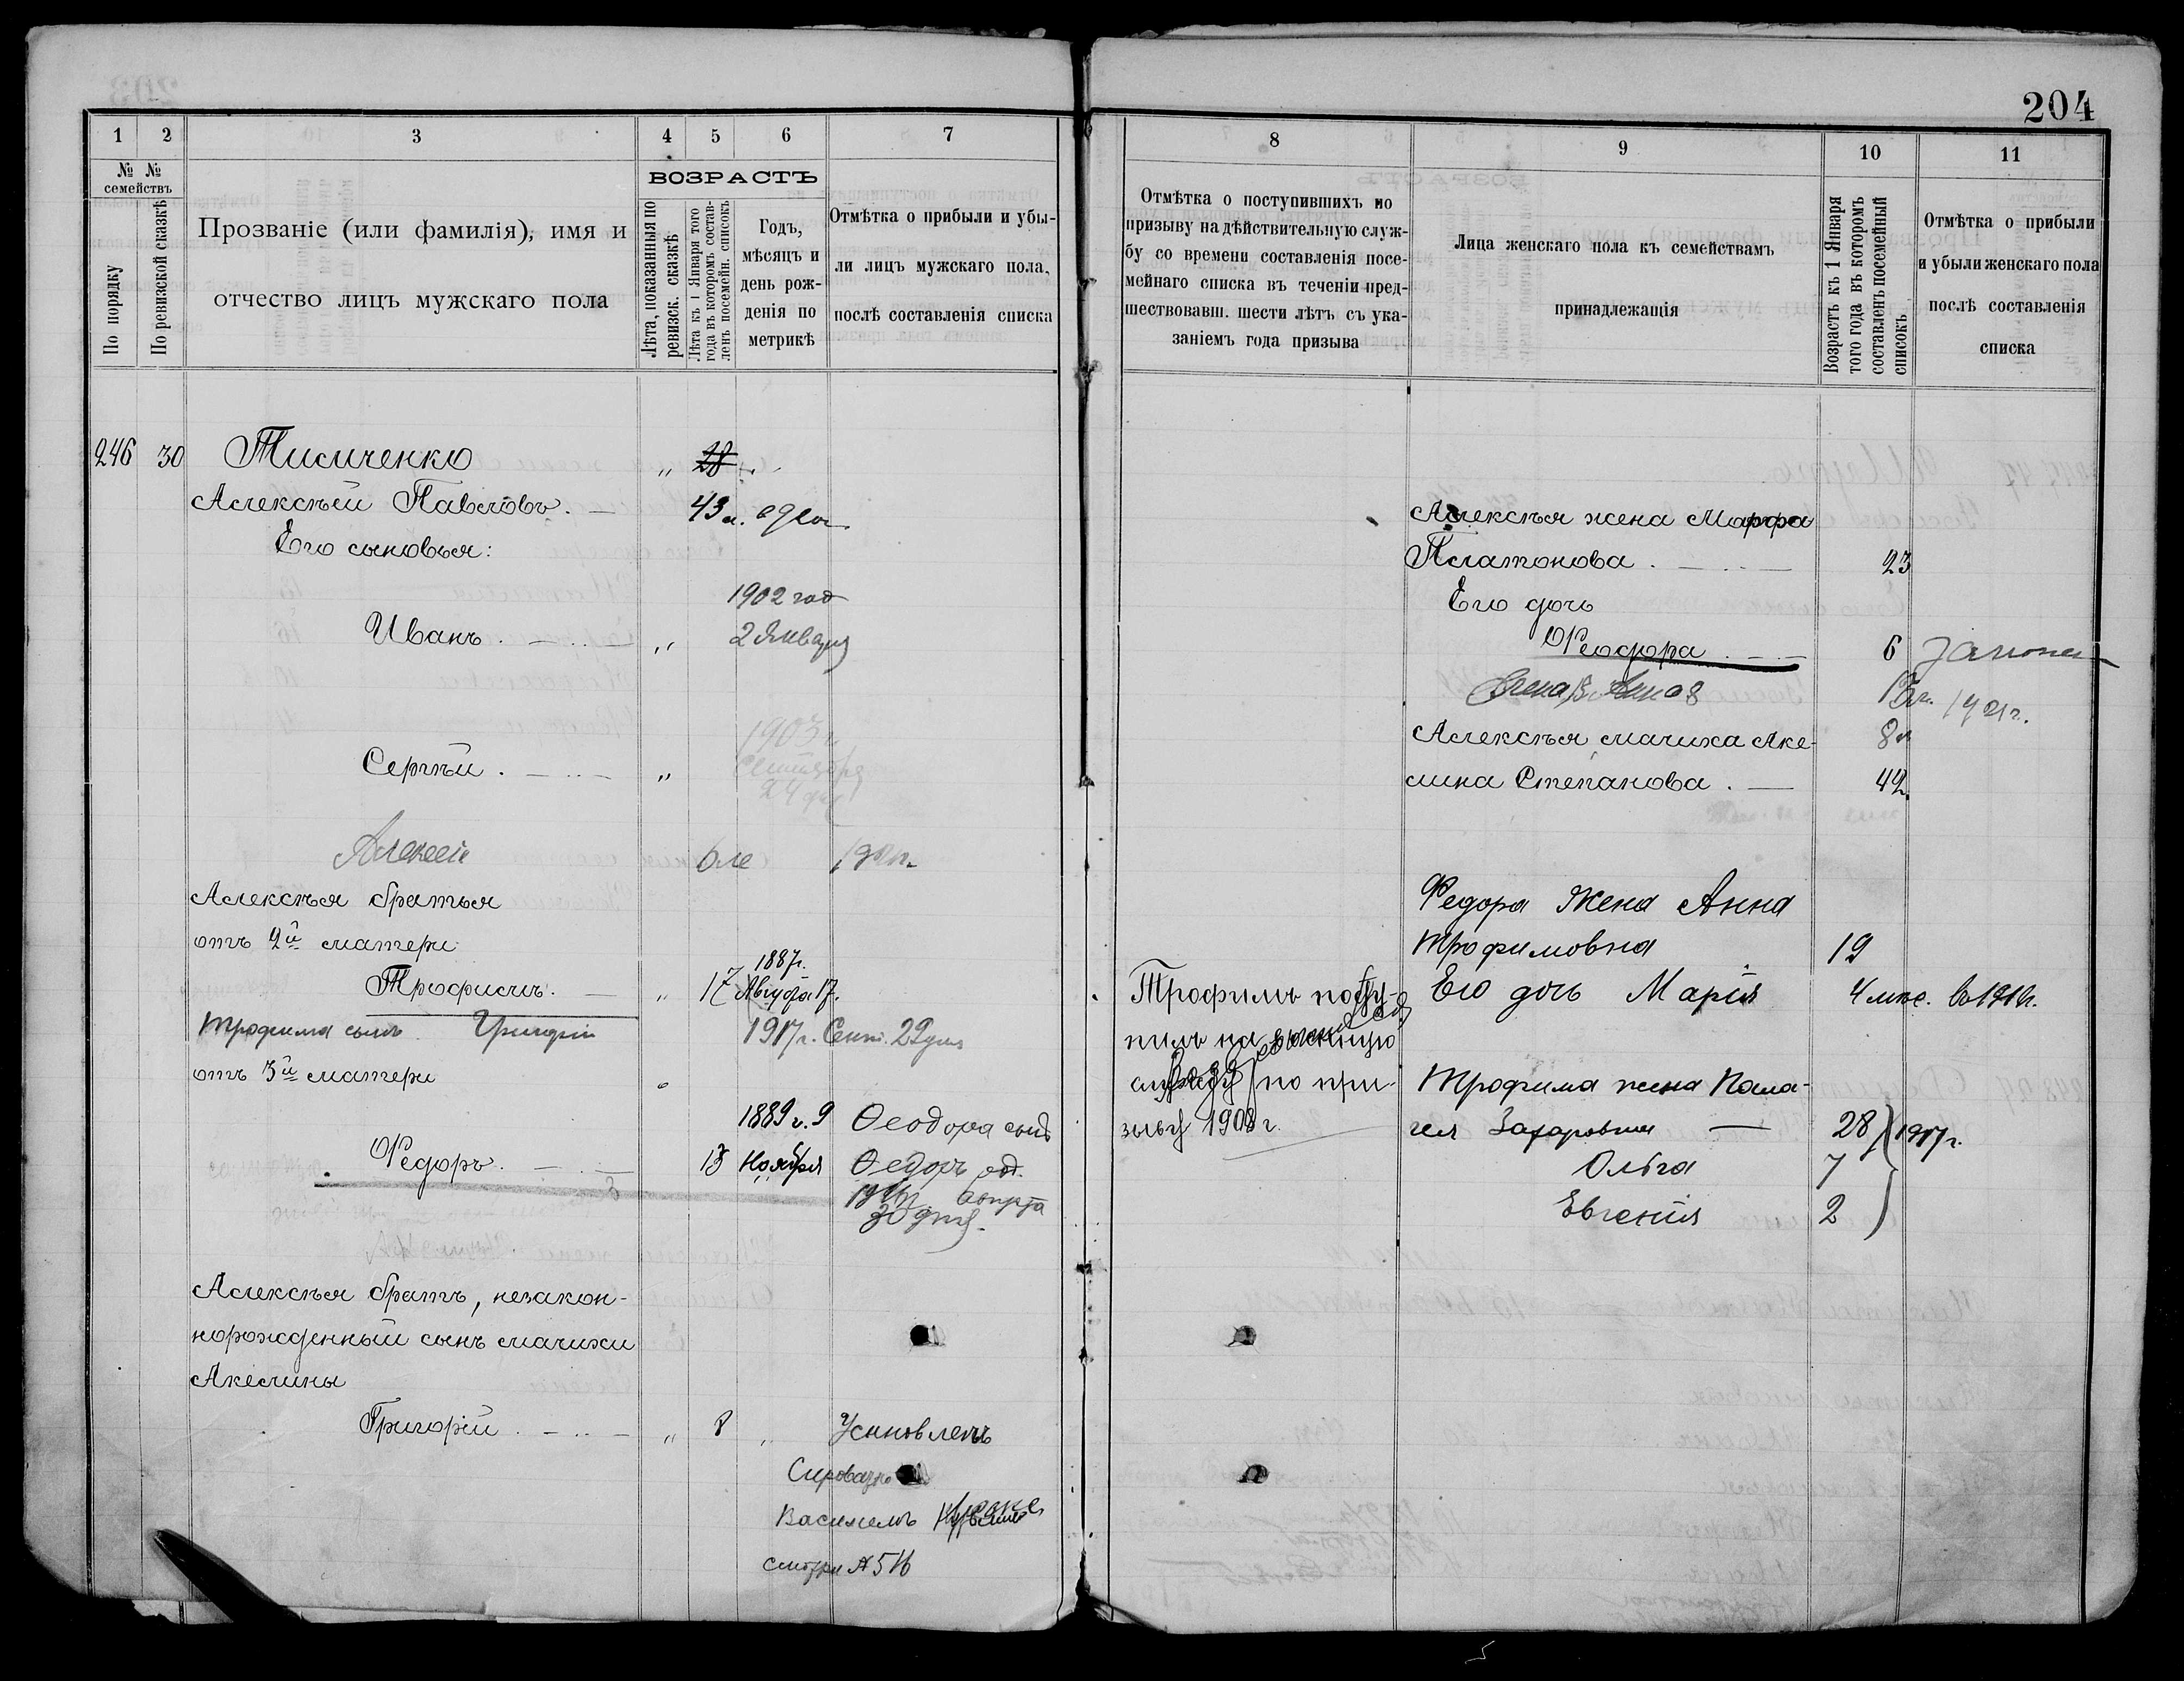 204
1 2 3 4 5 6 7
№ № семействъ
По порядку
По ревизской сказкѣ
Прозваніе (или фамилія), имя и
отчество лицъ мужскаго пола
ВОЗРАСТЪ
Лѣта, показанныя по
ревизск. сказкѣ
Лѣта къ 1 Января того
года въ которомъ состав-
ленъ посемейн. списокъ
Годъ,
мѣсяцъ и
день рож-
денія по
метрикѣ
Отмѣтка о прибыли и убы-
ли лицъ мужскаго пола,
послѣ составленія списка
246 30 Тисиченко " 28
Алексѣй Павловъ. 43
Его сыновья:
1902 год
Иванъ. " 2 Января
1903 г.
Сергѣй. " Сентября
24 дня
Алексей
Алексѣя братья
отъ 2й матери
1887 г.
Трофимъ. " 17 Августа 17.
Трофима сынъ Григорій 1917 г. Сент. 29 дня
отъ 3й матери
1889 г. 9 Ѳеодора сынъ
Федоръ. 15 Ноября Ѳедоръ род.
30 дня
Алексѣя братъ, незакон-
норожденный сынъ мачихи
Акелины
Григорій. " 8 " Усиновленъ
Василемъ
смотри № 516
8 9 10 11
Отмѣтка о поступившихъ по
призыву на дѣйствительную служ-
бу со времени составленія посе-
мейнаго списка въ теченіи пред-
шествовавш. шести лѣтъ съ ука-
заніемъ года призыва
Лица женскаго пола къ семействамъ
принадлежащія
Возрастъ къ 1 Января
того года въ которомъ
составленъ посемейный
списокъ
Отмѣтка о прибыли
и убыли женскаго пола
послѣ составленія
списка
Алексѣя жена Марфа
Платонова. 23
Его дочь
Феодора 6
Алексѣя мачиха Аке- 8
лина Степанова. 42
Федора Жена Анна
Трофимовна 19
Его дочь Марія 4 мѣс.
Трофимъ посту-
пилъ на военную
службу по при-
зыву 1908 г.
Трофима жена Пала-
гея Захаровна 28 1917 г.
Ольга 7
Евгенія 2